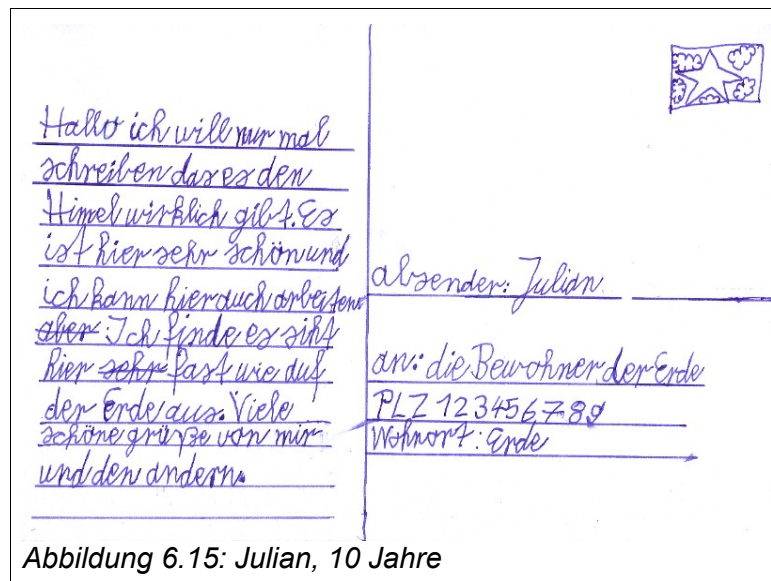 Hallo ich will nur mal
schreiben das es den
Himel wirklich gibt. Es
ist hier sehr schön und
ich kann hier auch arbeiten
aber. Ich finde es siht
hier sehr fast wie auf
der Erde aus. Viele
schöne grüße von mir
und den andern.
absender: Julian
an: die Bewohner der Erde
PLZ 123456789
Wohnort: Erde
Abbildung 6.15: Julian, 10 Jahre